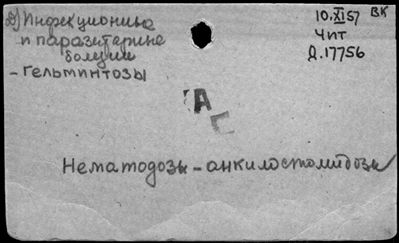 2) Инфекционные
и паразитарные
болезни
- Гельминтозы
10.XI57 ВК
Чит
Д.17756
АС
Нематодозы - анкилостомидозы